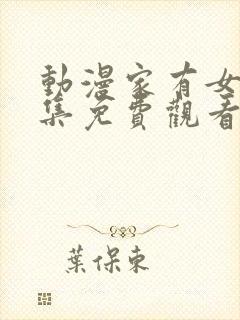 動漫家有女
集免費觀看
葉保東